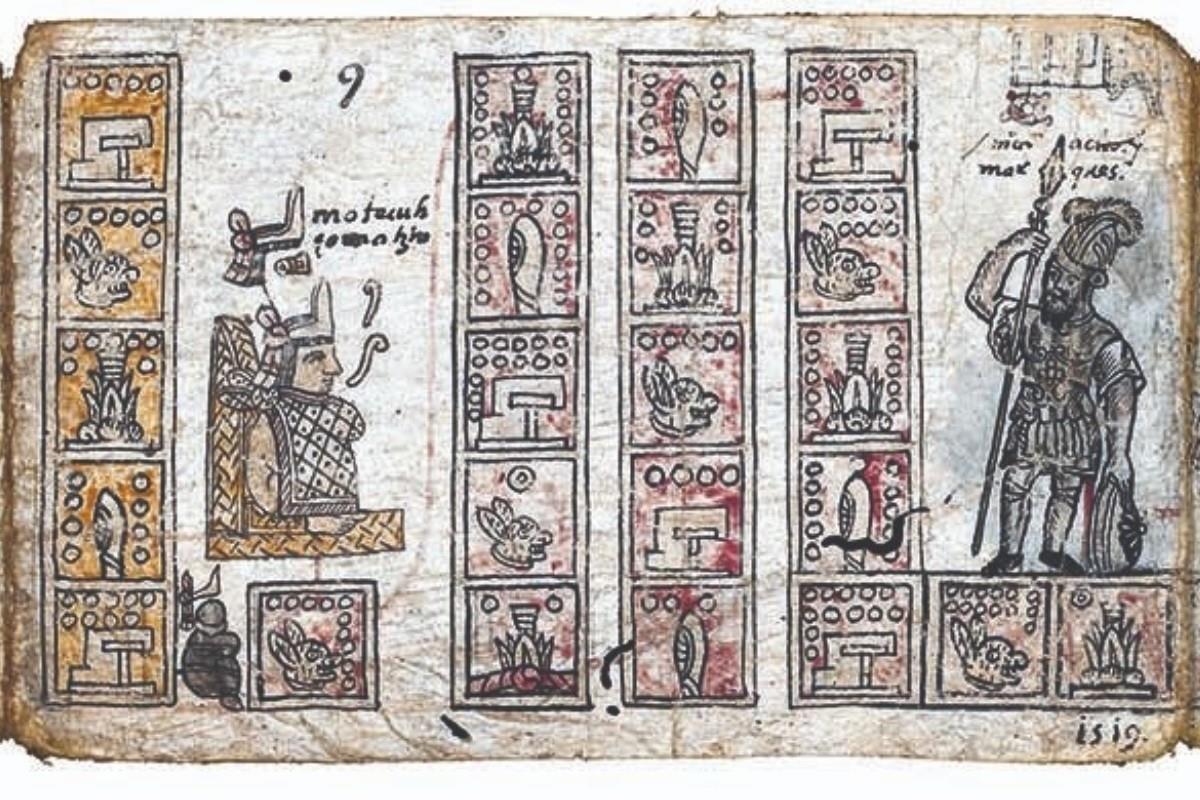 9
motecuh
çomatzin
nicã acico y
mar ques.
1519.